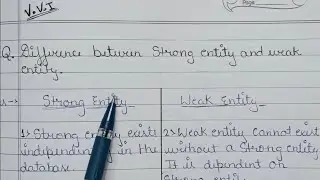 V.V.I
Q. Difference between Strong entity and weak
entity.
Strong Entity
1) Strong entity exists
independently in the
database.
Weak Entity
2) Weak entity cannot exist
without a Strong entity
It is dipendent on
Strong entity